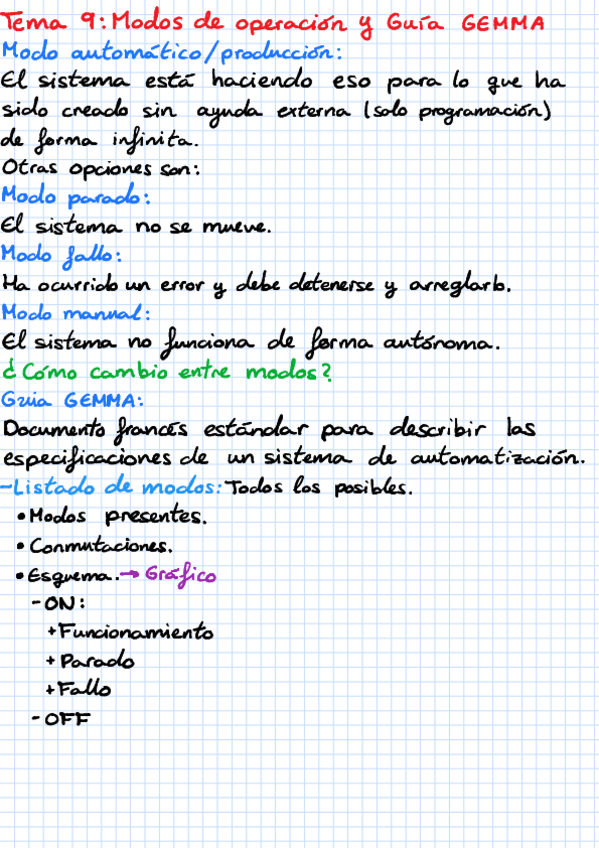 Tema 9: Modos de operación y Guía GEMMA
Modo automático/producción:
El sistema está haciendo eso para lo que ha
sido creado sin ayuda externa (solo programación)
de forma infinita.
Otras opciones son:
Modo parado:
El sistema no se mueve.
Modo fallo:
Ha ocurrido un error y debe detenerse y arreglarlo.
Modo manual:
El sistema no funciona de forma autónoma.
¿Cómo cambio entre modos?
Guía GEMMA:
Documento francés estándar para describir las
especificaciones de un sistema de automatización.
-Listado de modos: Todos los posibles.
• Modos presentes.
• Conmutaciones.
• Esquema. → Gráfico
- ON:
+ Funcionamiento
+ Parado
+ Fallo
- OFF